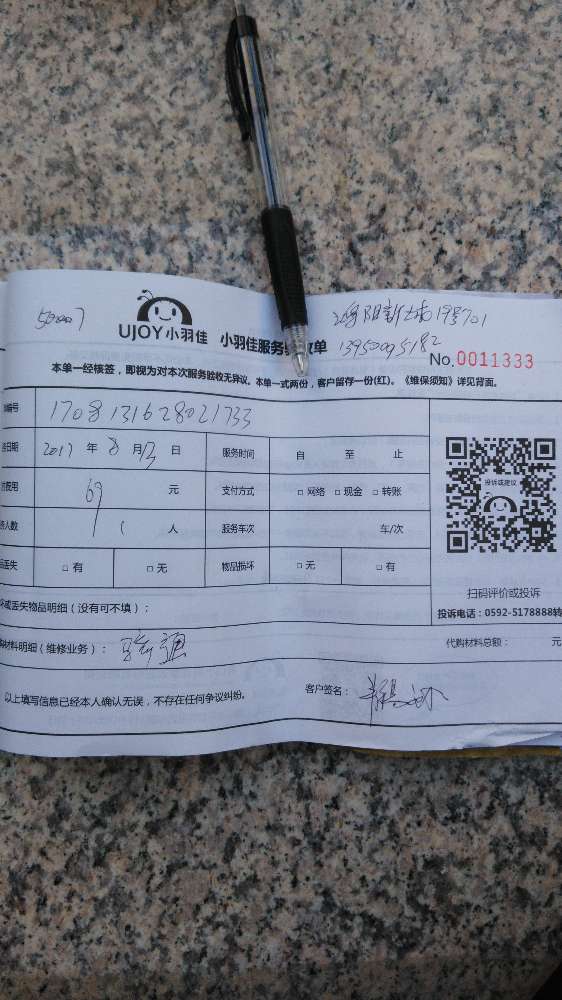 UJOY小羽佳 小羽佳服务验收单
13950095182
No.0011333
本单一经核签，即视为对本次服务验收无异议。本单一式两份，客户留存一份(红)。《维保须知》详见背面。
编号 1708131628021733
日期 2017 年 8 月 13 日 服务时间 自 至 止
费用 69 元 支付方式 □ 网络 □ 现金 □ 转账
人数 1 人 服务车次 车/次
丢失 □ 有 □ 无 物品损坏 □ 无 □ 有
投诉或建议
扫码评价或投诉
投诉电话：0592-5178888转
坏或丢失物品明细（没有可不填）：
材料明细（维修业务）： 代购材料总额： 元
以上填写信息已经本人确认无误，不存在任何争议纠纷。 客户签名：